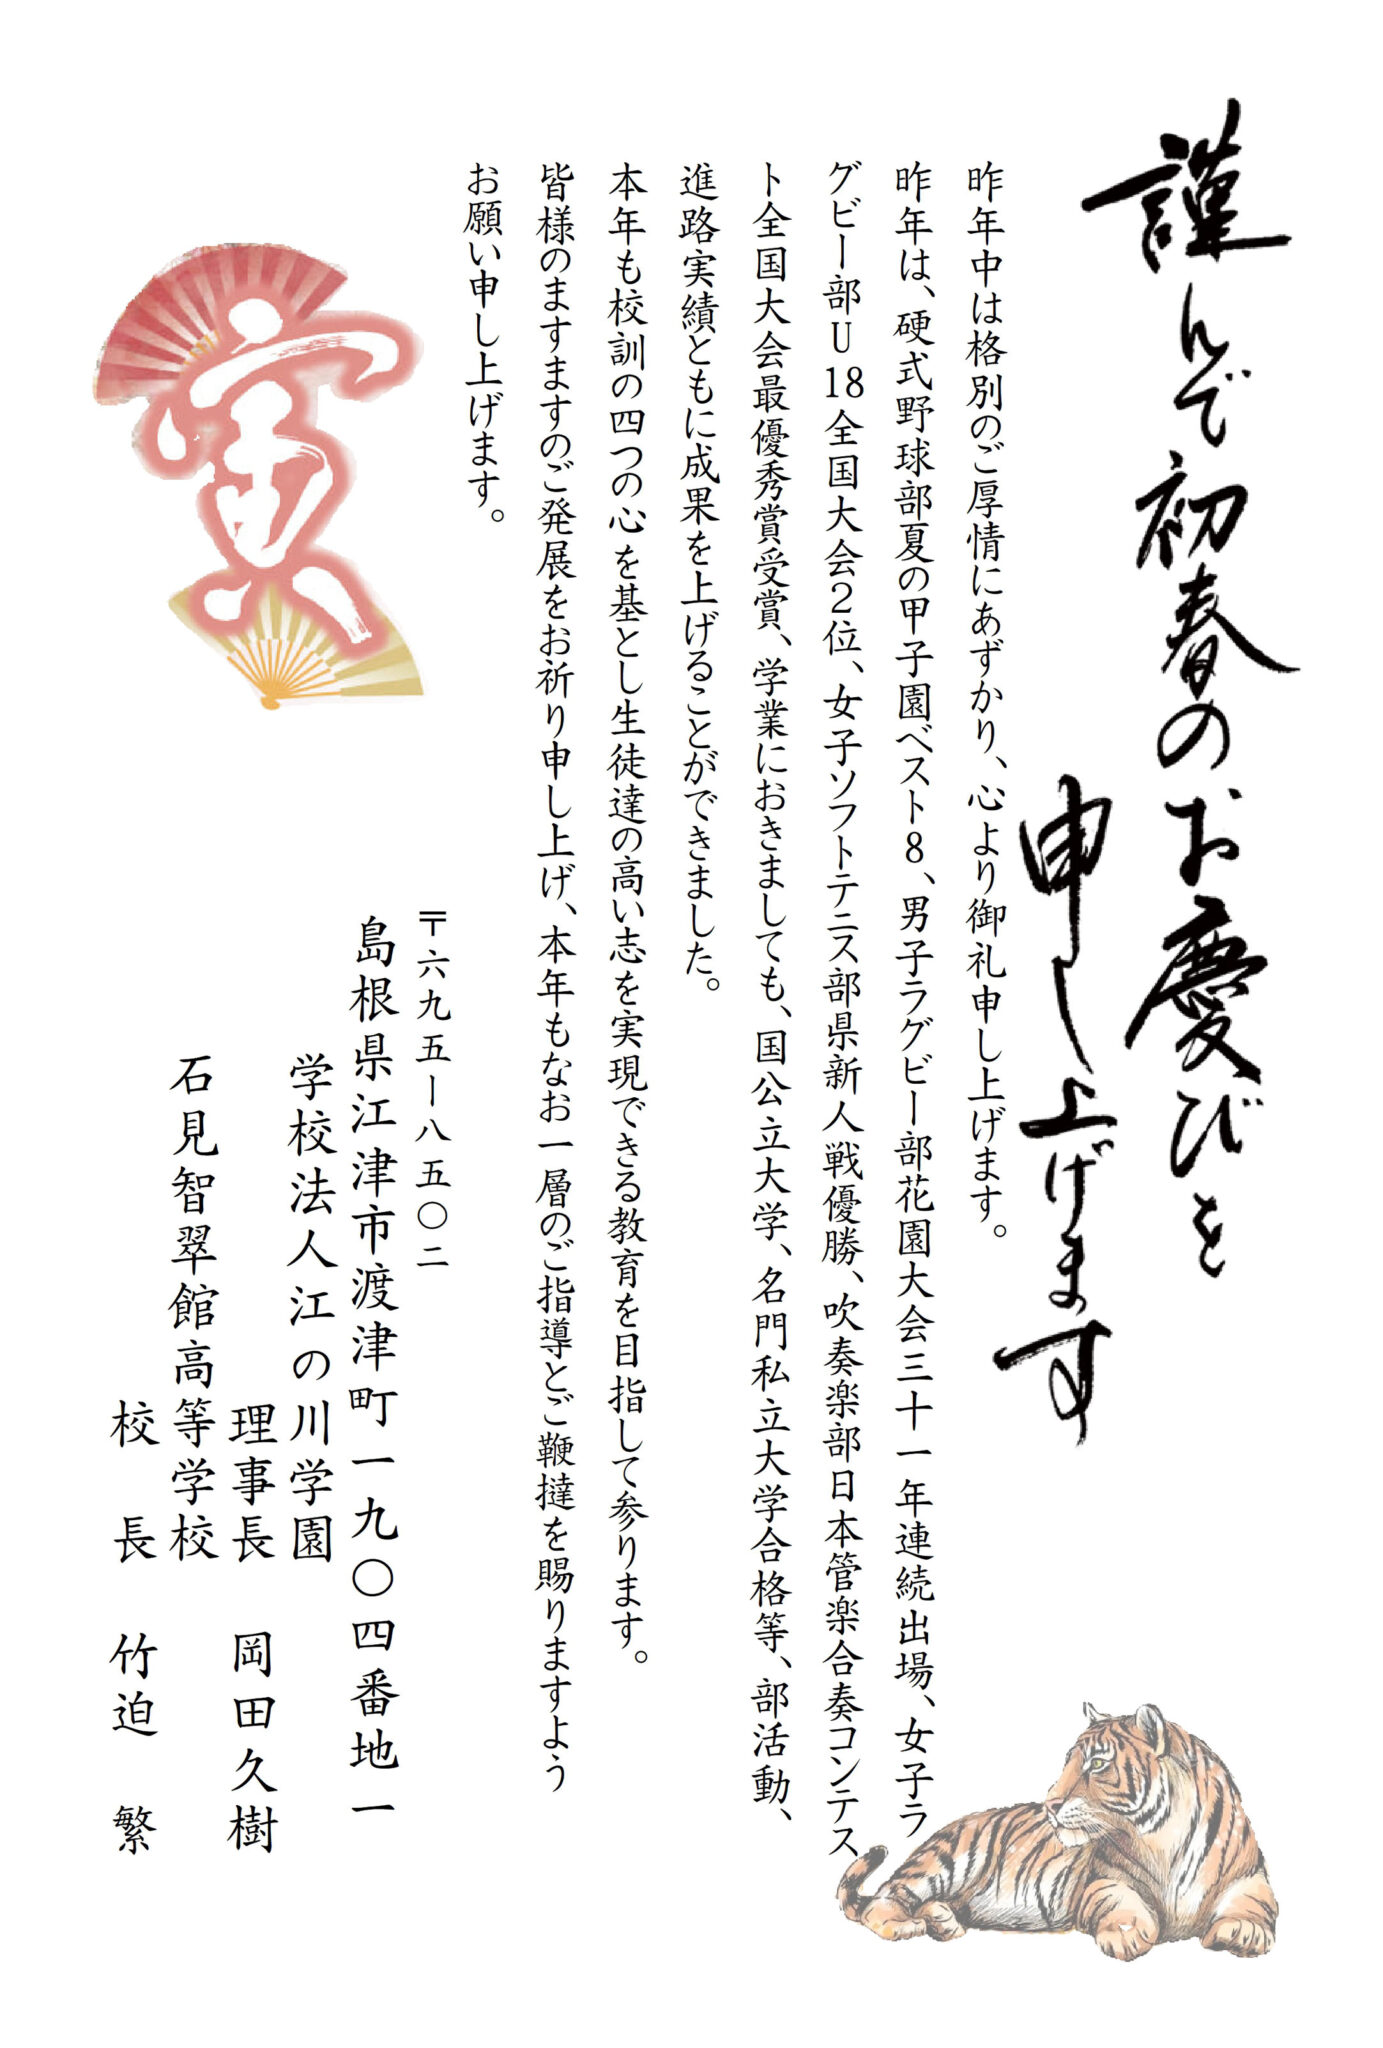 謹んで初春のお慶びを
申し上げます
昨年中は格別のご厚情にあずかり、心より御礼申し上げます。
昨年は、硬式野球部夏の甲子園ベスト8、男子ラグビー部花園大会三十一年連続出場、女子ラ
グビー部U18全国大会2位、女子ソフトテニス部県新人戦優勝、吹奏楽部日本管楽合奏コンテス
ト全国大会最優秀賞受賞、学業におきましても、国公立大学、名門私立大学合格等、部活動、
進路実績ともに成果を上げることができました。
本年も校訓の四つの心を基とし生徒達の高い志を実現できる教育を目指して参ります。
皆様のますますのご発展をお祈り申し上げ、本年もなお一層のご指導とご鞭撻を賜りますよう
お願い申し上げます。
寅
〒六九五ー八五〇二
島根県江津市渡津町一九〇四番地一
学校法人江の川学園
理事長 岡田久樹
石見智翠館高等学校
校長 竹迫繁